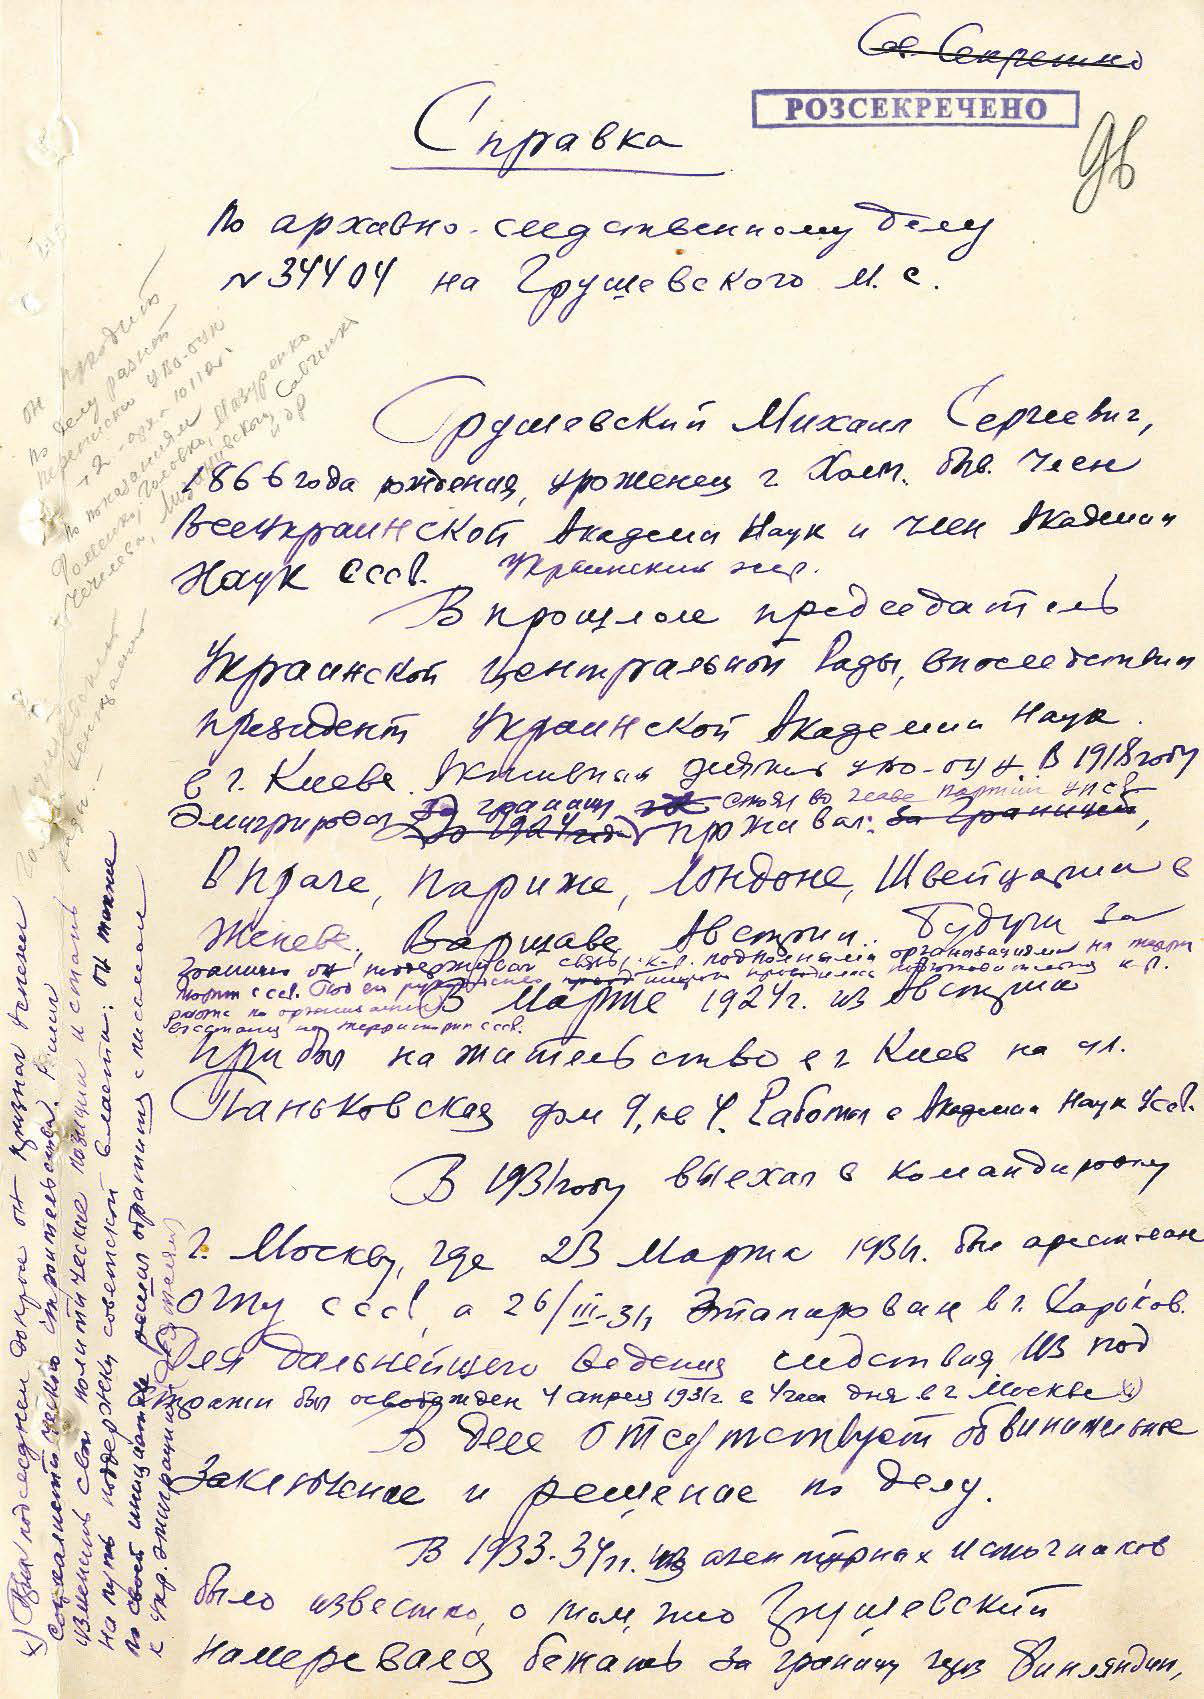 Сов. Секретно
РОЗСЕКРЕЧЕНО
96
Справка
по архивно-следственному делу
№ 34404 на Грушевского М. С.
Грушевский Михаил Сергеевич,
1866 года рождения, уроженец г. Холм. быв. член
Всеукраинской Академии Наук и член Академии
Наук СССР. Украинский
В прошлом председатель
Украинской центральной Рады, впоследствии
президент Украинской Академии Наук
в г. Киеве. Активный деятель укр. В 1918 году
за границу стоял во главе партии УПСР
эмигрировал до 1924 года проживал: за границей,
в Праге, Париже, Лондоне, Швейцарии в
Женеве, Варшаве, Австрии. Будучи за
границей он поддерживал связь с к.-р. подпольными организациями на терри
тории СССР. Под его руководством проводилась подготовительная к.-р.
работа по организации
восстания на территории СССР.
В Марте 1924 г. из Австрии
прибыл на жительство в г. Киев на ул.
Паньковская дом 9, кв 4. Работал в Академии Наук УССР.
В 1931 году выехал в командировку
г. Москву, где 23 Марта 1931 г. был арестован
ОГПУ СССР, а 26/III-31 г. этапирован в г. Харьков.
Для дальнейшего ведения следствия из под
стражи был освобожден 4 апреля 1931 г. в 4 часа дня в г. Москве x)
В деле отсутствует обвинительное
заключение и решение по делу.
В 1933-34 гг. из агентурных источников
было известно, о том, что Грушевский
намеревался бежать за границу через Финляндию,
он проходит
по делу разной
переписки
По показаниям
Чечеля, Мазуренко
Савченко
и др
x) При последнем допросе он признал успехи
социалистического строительства. Решил
изменить свои политические позиции и стать
на путь поддержки советской власти; он также
по своей инициативе решил обратиться с письмом
к укр. эмиграции